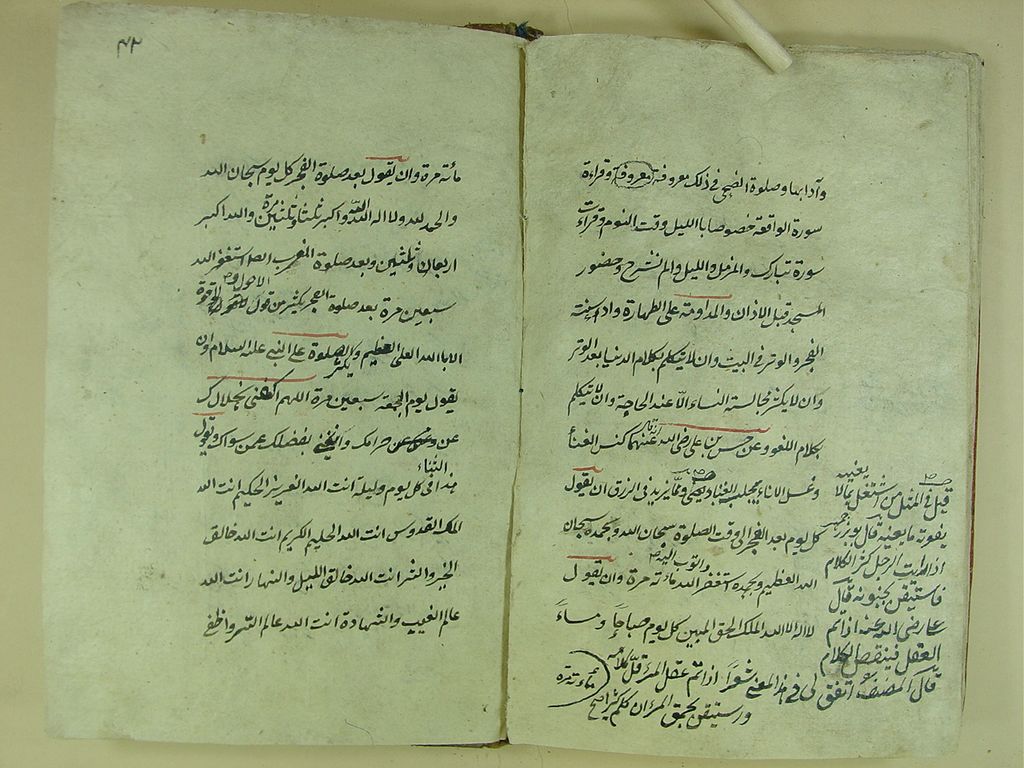 وآدابها وصلوة الضحى فى ذلك معروفة معروفة وقراءة
سورة الواقعة خصوصا بالليل وقت النوم وقراءت
سورة تبارك والمزمل والليل والم نشرح وحضور
المسجد قبل الاذان والمداومة على الطهارة واداء سنة
الفجر والوتر فى البيت وان لا يتكلم بكلام الدنيا بعد الوتر
وان لا يكثر مجالسة النساء الا عند الحاجة وان لا يتكلم
بكلام اللغو وعن حسن بن على رضى الله عنهما كنس الفناء
وغسل الاناء مجلبة الغناء ومما يزيد فى الرزق ان يقول
كل يوم بعد الفجر الى وقت الصلوة سبحان الله وبحمده سبحان
الله العظيم وبحمده استغفر الله مأته مرة وان يقول
واتوب اليه
لا اله الا الله الملك الحق المبين كل يوم صباحا ومساء
مأته مرة
قيل فى المثل من اشتغل بمالا يعنيه
يفوته ما يعنيه قال بوزرجمهر
اذا رايت الرجل كثير الكلام
فاستيقن بجنونه قال
على رضى الله عنه اذا تم
العقل فينقص الكلام
قال المصنف اتفق لى فى هذا المعنى شعرا اذا تم عقل المرء قل كلامه
واستيقن بحمق المرء ان كان مكثرا
٤٣
مأته مرة وان يقول بعد صلوة الفجر كل يوم سبحان الله
والحمد لله ولا اله الا الله والله اكبر ثلثا وثلثين مرة والله اكبر
اربعا وثلثين وبعد صلوة المغرب ايضا استغفر الله
سبعين مرة بعد صلوة الفجر يكثر من قول لا حول ولا قوة
الا بالله العلى العظيم ويكثر الصلوة على النبى عليه السلام وان
يقول يوم الجمعة سبعين مرة اللهم اكفنى بحلالك
عن حرامك واغننى بفضلك عمن سواك ويقول
هذا الثناء فى كل يوم وليلة انت الله العزيز الحكيم انت الله
الملك القدوس انت الله الحليم الكريم انت الله خالق
الخير والشر انت الله خالق الليل والنهار انت الله
عالم الغيب والشهادة انت الله عالم السر واخفى